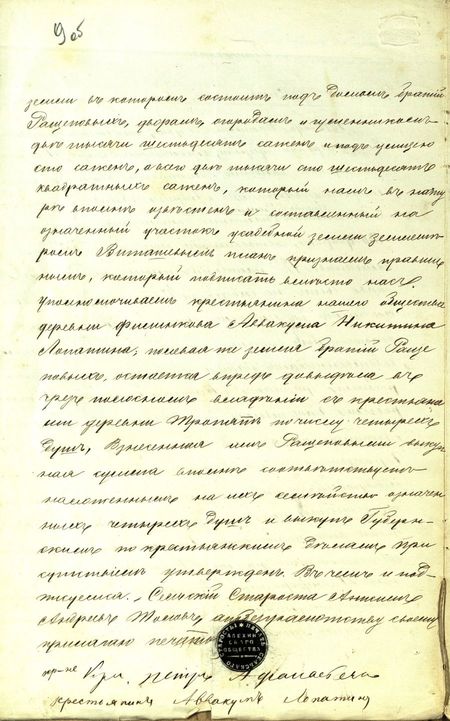 земли въ которомъ состоитъ подъ домомъ братій
Ращеповыхъ, дворомъ, огородомъ и гуменникомъ
двѣ тысячи шестьдесятъ саженъ и подъ улицею
сто саженъ, а всего двѣ тысячи сто шестьдесятъ
квадратныхъ саженъ, который намъ въ нату
рѣ вполнѣ извѣстенъ и составленный на
означенный участокъ усадебной земли землемѣ
ромъ планъ признаемъ правиль
нымъ, который подписать вмѣсто насъ
уполномочиваемъ крестьянина нашего общества
деревни Аввакума Никитина
Лопатина; полевая же земля братій Раще
повыхъ, остается впредь до выдѣла въ
чрезполосномъ владѣніи съ крестьяна
ми деревни по числу четырехъ
душъ, Взнесенная ими Ращеповыми выкуп
ная сумма вполнѣ соотвѣтствуетъ
наложеннымъ на ихъ семейство означен
ныхъ четырехъ душъ и выкупъ Губерн-
скимъ по крестьянскимъ дѣламъ При
сутствіемъ утвержденъ. Въ чемъ и под
писуемся. Сельскій Староста
Андреевъ а неграмотству своему
прилагаю печать
Петръ
крестьянинъ Аввакумъ Лопатинъ